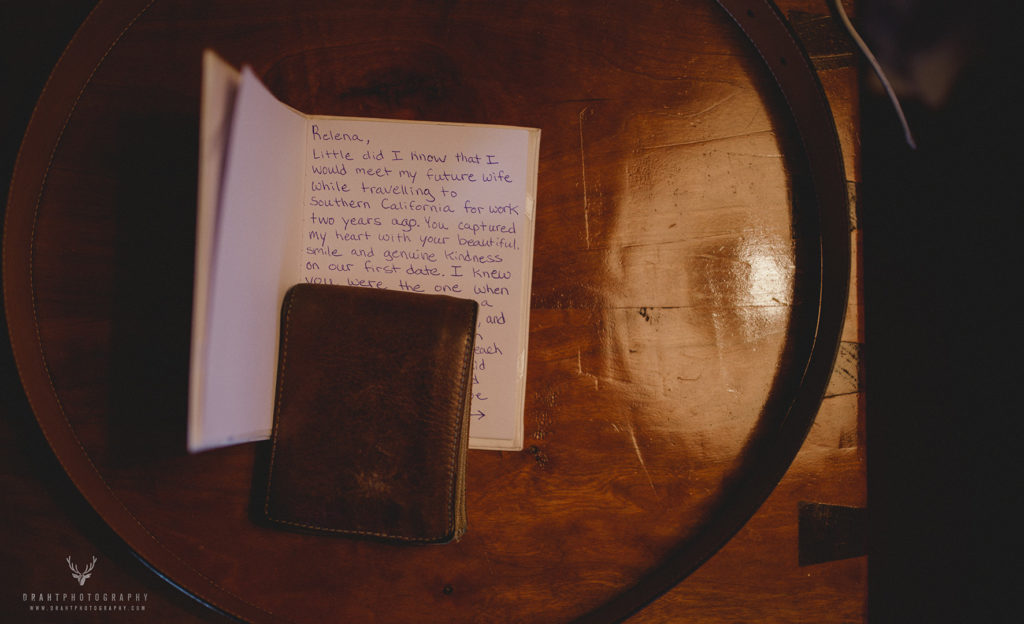 Relena,
Little did I know that I
would meet my future wife
while travelling to
Southern California for work
two years ago. You captured
my heart with your beautiful
smile and genuine kindness
on our first date. I knew
you were the one when
a
, and
each
→
DRAHTPHOTOGRAPHY
WWW.DRAHTPHOTOGRAPHY.COM